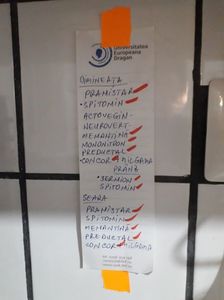 Universitatea
Europeana
Dragan
DIMINEATA
PRAMISTAR
• SPITOMIN
ACTOVEGIN
NEUROVERT
MEMANTINA
MONONITRON
PREDUCTAL
CONCOR MILGAMA
PRANZ
• SERMION
SPITOMIN
SEARA
PRAMISTAR
SPITOMIN
MEMANTINA
PREDUCTAL
CONCOR MILGAMA